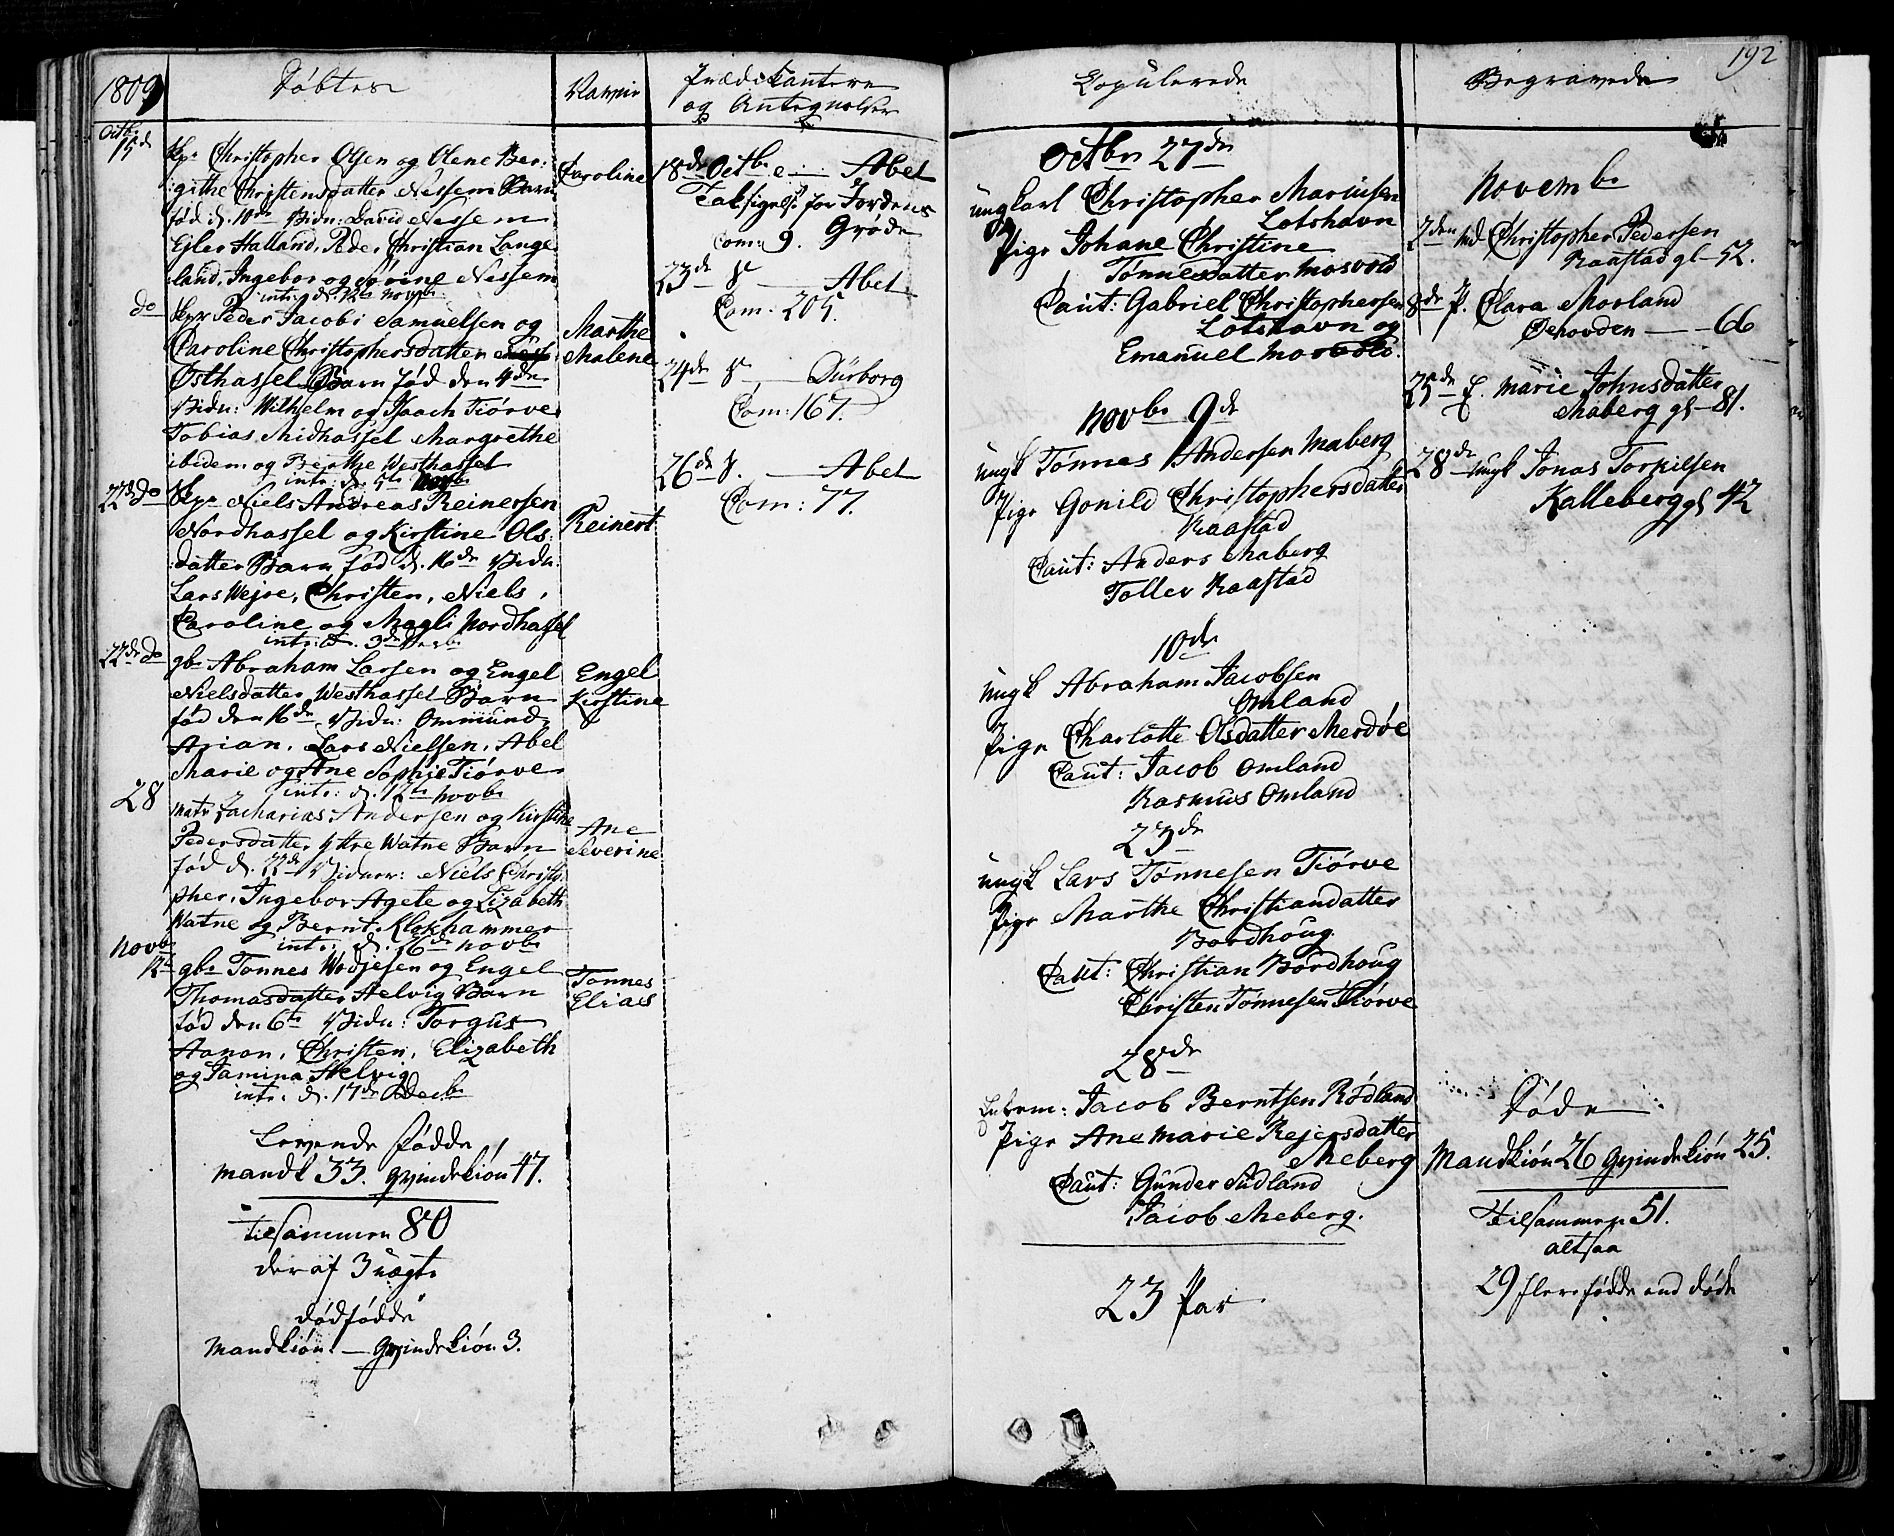 1809
Døbte
Navne
Prædikantere
og Antegnelser
Octbr
15d
Christopher Olsen og Olene Ber:
githe Christensdatter Nessem Barn
fød d. 10de Vidn: David Nessem
Ejler Halland, Peder Christian Lange
land, Ingebor og Sørine Nessem
intr: d. 12te Novbr
Caroline
do
Peder Jacobi Samuelsen og
Caroline Christophersdatter
Østhassel Barn fød den 4de
Vidn: Wilhelm og Isaach Tiørve
Tobias Midhassel Margrethe
ibidem og Berthe Westhassel
intr: d. 5te Novbr
Marthe
Malene
22de do
Niels Andreas Reinersen
Nordhassel og Kirstine Ols:
datter Barn fød d. 16de Vidn:
Lars Wejre, Christen, Niels,
Caroline og Magli Nordhassel
intr: d. 3de
Reinert
22de do
gbr Abraham Larsen og Engel
Nielsdatter Westhassel Barn
fød den 16de Vidn: Ommund
Arian, Lars Nielsen, Abel
Marie og Ane Sophie Tiørve
intr: d. 12te Novbr
Engel
Kirstine
28
Matr Zacharias Andersen og Kirstine
Pedersdatter Yttre Watne Barn
fød d. 22de Vidner: Niels Christo
pher, Ingebor Agete og Lizabeth
Watne og Bernt Klokhammer
intr: d. 26de Novbr
Ane
Severine
Novbr
12te
gbr Tønnes Wodjesen og Engel
Thomasdatter Helvig Barn
fød den 6te Vidn: Torgus
Aanon, Christen, Elizabeth
og Jamina Helvig
intr: d. 17de Decbr
Tønnes
Elias
Levende fødde
Mandk 33. Qvindekiøn 47.
tilsammen 80
deraf 3 uægte
dødfødde
Mandkiøn. — Qvindekiøn 3.
18de Octbr e — Abel
Taksigelse for Jordens
Grøde
Com: 9.
23de — Abel
Com. 205.
24de — Dürborg
Com: 167.
26de — Abel
Com: 77.
Copulerede
Octbr 27de
ungkarl Christopher Mariusen
Lotshavn
Pige Johane Christine
Tønnesdatter Mosvold
Caut: Gabriel Christophersen
Lotshavn og
Emanuel Mosvold.
Novbr 9de
ungk Tønnes Andersen Maberg
Pige Gonild Christophersdatter
Raastad
Caut: Anders Maberg
Tollev Raastad
10de
ungk Abraham Jacobsen
Omland
Pige Charlotte Olsdatter Merdøe
Caut: Jacob Omland
Rasmus Omland
23de
ungk Lars Tønnesen Tiørve
Pige Marthe Christiandatter
Bordhoug
Caut: Christian Bordhoug
Christen Tønnesen Tiørve
28de
Jacob Berntsen Rødland
Pige Ane Marie Rejersdatter
Meberg
Caut: Gunder Sudland
Jacob Meberg.
23 Par
Begravede
192
Novembr
2den Christopher Pedersen
Raastad gl 52.
8de P. Clara Morland
66
25de Marie Johnsdatter
Maberg gl 81.
28de ungk Jonas Torkilsen
Kalleberg gl 42
Døde
Mandkiøn 26 Qvindekiøn 25.
tilsammen 51.
altsaa
29 flere fødde end døde